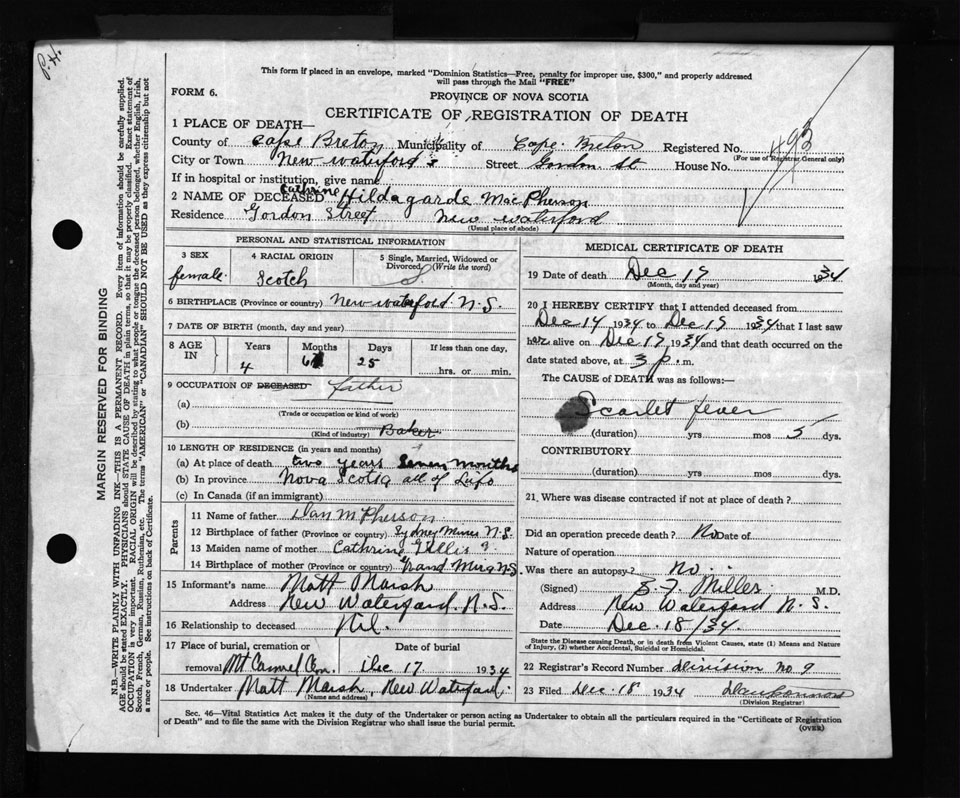 P.H.
This form if placed in an envelope, marked "Dominion Statistics—Free, penalty for improper use, $300," and properly addressed
will pass through the Mail "FREE"
FORM 6.
PROVINCE OF NOVA SCOTIA
CERTIFICATE OF REGISTRATION OF DEATH
1 PLACE OF DEATH—
County of Cape Breton Municipality of Cape Breton Registered No.
(For use of Registrar General only)
City or Town New Waterford Street Gordon St House No.
If in hospital or institution, give name
2 NAME OF DECEASED Cathrine Hildagarde MacPherson
Residence Gordon Street New Waterford
(Usual place of abode)
PERSONAL AND STATISTICAL INFORMATION
3 SEX 4 RACIAL ORIGIN 5 Single, Married, Widowed or Divorced (Write the word)
female Scotch S.
6 BIRTHPLACE (Province or country) New Waterford N.S.
7 DATE OF BIRTH (month, day and year)
8 AGE IN Years Months Days If less than one day,
4 25 hrs. or min.
9 OCCUPATION OF DECEASED father
(a)
(Trade or occupation or kind of work)
(b) Baker
(Kind of industry)
10 LENGTH OF RESIDENCE (in years and months)
(a) At place of death two years Seven months
(b) In province Nova Scotia all of Life
(c) In Canada (if an immigrant)
Parents
11 Name of father Dan McPherson
12 Birthplace of father (Province or country) Sydney Mines N.S.
13 Maiden name of mother Cathrine Gillis
14 Birthplace of mother (Province or country) Grand Mira N.S.
15 Informant's name Matt Marsh
Address New Waterford. N.S.
16 Relationship to deceased Nil.
17 Place of burial, cremation or removal Mt Carmel Cem. Date of burial Dec 17 1934
18 Undertaker Matt Marsh, New Waterford.
(Name and address)
MEDICAL CERTIFICATE OF DEATH
19 Date of death Dec 1934
(Month, day and year)
20 I HEREBY CERTIFY that I attended deceased from
Dec 14 1934 to Dec 1934 that I last saw
her alive on Dec 1934 and that death occurred on the
date stated above, at 3 p. m.
The CAUSE of DEATH was as follows:—
Scarlet fever
(duration) yrs mos 5 dys.
CONTRIBUTORY
(duration) yrs mos dys.
21 Where was disease contracted if not at place of death?
Did an operation precede death? No Date of
Nature of operation
Was there an autopsy? No.
(Signed) Miller M.D.
Address New Waterford N.S.
Date Dec. 18/34.
State the Disease causing Death, or in death from Violent Causes, state (1) Means and Nature
of Injury, (2) whether Accidental, Suicidal or Homicidal.
22 Registrar's Record Number division no 9
23 Filed Dec. 18 1934 Dan Connors
(Division Registrar)
Sec. 46—Vital Statistics Act makes it the duty of the Undertaker or person acting as Undertaker to obtain all the particulars required in the "Certificate of Registration
of Death" and to file the same with the Division Registrar who shall issue the burial permit.
(OVER)
MARGIN RESERVED FOR BINDING
N.B.—WRITE PLAINLY WITH UNFADING INK—THIS IS A PERMANENT RECORD. Every item of information should be carefully supplied.
AGE should be stated EXACTLY. PHYSICIANS should STATE CAUSE OF DEATH in plain terms, so that it may be properly classified. Exact statement of
OCCUPATION is very important. RACIAL ORIGIN will be described by stating to what people or tongue the deceased person belonged, whether English, Irish,
Scotch, French, German, Russian, Ruthenian, etc. The terms "AMERICAN" or "CANADIAN" SHOULD NOT BE USED as they express citizenship but not
a race or people. See instructions on back of Certificate.